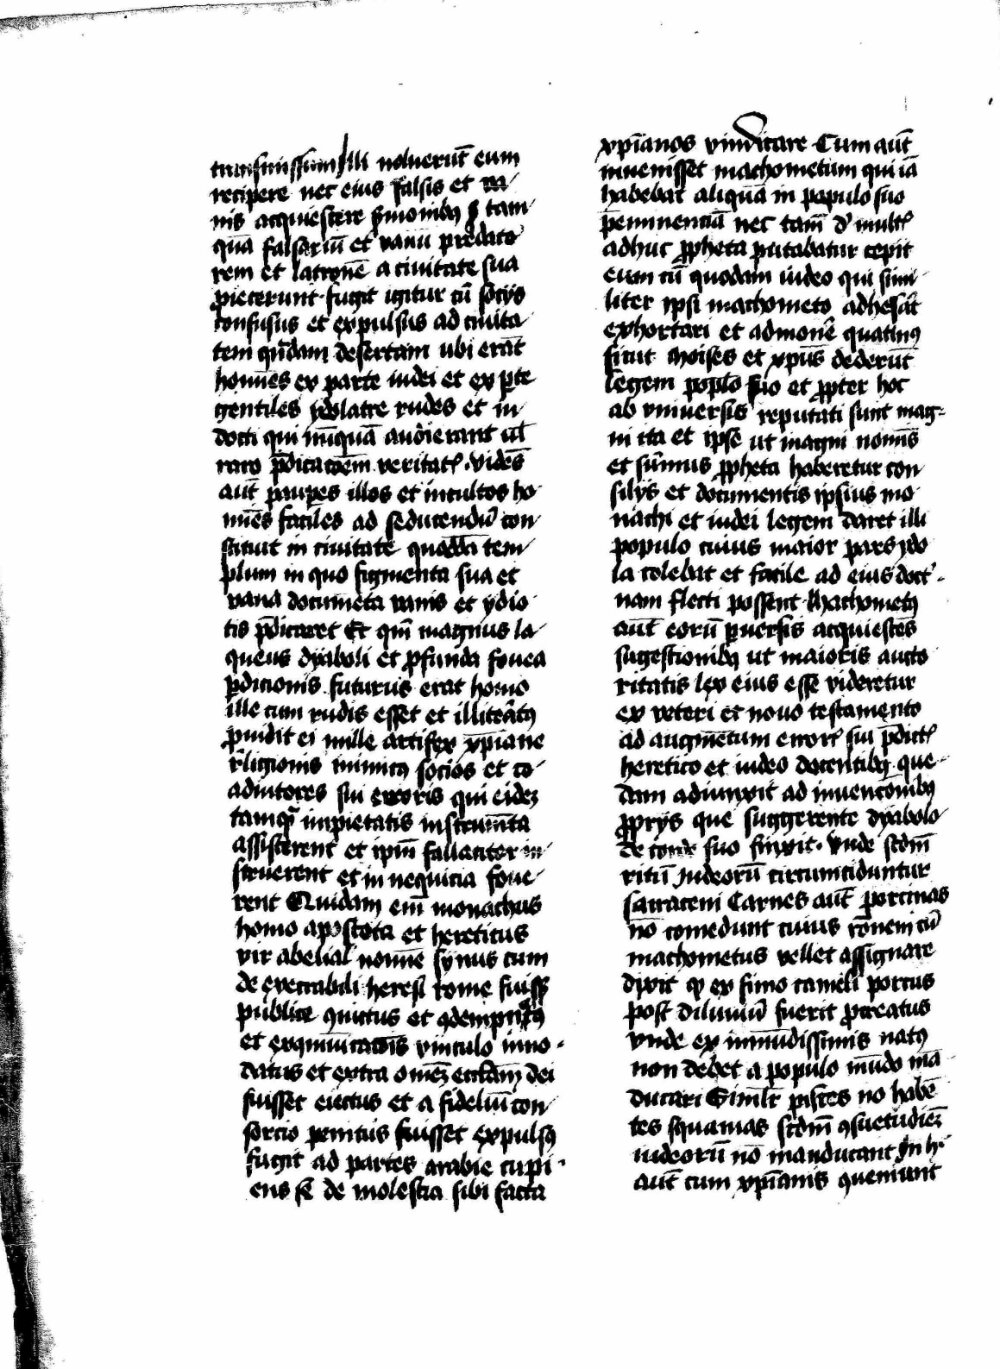 transmissum Illi noluerūt eum
recipere nec eius falsis et va
nis acquiescere s̄monibꝫ s tam
quā falsariū et vanū predato
rem et latronē a ciuitate sua
ꝓiecerunt fugit igitur cū socijs
confusus et expulsus ad ciuita
tem qūdam desertam ubi erāt
homīes ex parte iudei et ex ꝑte
gentiles ydolatre rudes et in
docti qui nūquā audierant ul̄
raro p̄dicatōem veritatꝭ vidēs
aūt pauꝑes illos et incultos ho
mīes faciles ad seducendū con
stituit in ciuitate quadā tem
plum in quo figmenta sua et
vana documēta vanis et ydio
tis p̄dicaret Et qm̄ magnus la
queus dyaboli et ꝓfunda fouea
ꝑdicionis futurus erat homo
ille cum rudis esset et illiterātꝰ
ꝓuidit ei mille artifex xp̄iane
religionis inimicꝰ socios et co
adiutores sui erroris qui eidēz
tamqͣ impietatis instrumēta
assisterent et ip̄m fallaciter in
struerent et in nequicia foue
rent Quidam em̄ monachus
homo apostota et hereticus
vir abelial nomīe s̄gnus cum
de execrabili heresi rome fuiss̄
publice ꝯuictus et ꝯdempnatꝰ
et excōmūicacōis vinculo inno
datus et extra omēz eccl̄am dei
fuisset eiectus et a fideliū con
sorcio penitus fuisset expulsꝰ
fugit ad partes arabie cupi
ens se de molestia sibi facta
xp̄ianos vindicare Cum aūt
inuenisset machometum qui iā
habebat aliquā in populo suo
p̄eminenciā nec tam̄ d̄ multꝭ
adhuc ꝓpheta putabatur cepit
eum cū quodam iudeo qui simi
liter ipsi machometo adhesāt
exhortari et admonē quatinꝰ
sicut Moises et xp̄us dederūt
legem poplo suo et ꝓpter hoc
ab vniuersis reputati sunt mag
ni ita et ipse ut magni nomīs
et sūmus ꝓpheta haberetur con
silijs et documentis ipsius mo
nachi et iudei legem daret illi
populo cuius maior pars ydo
la colebat et facile ad eius doctⁱ
nam flecti possent Machometꝰ
aūt eorū ꝑuersis acquiescēs
sugestionibꝫ ut maioris aucto
ritatis lex eius esse videretur
ex veteri et nouo testamento
ad augmētum errorꝭ sui p̄dictꝭ
heretico et iudeo docentibꝫ que
dam adiunxit ad inuencōnibꝫ
ꝓprijs que suggerente dyabolo
de corde suo finxit vnde scd̄m
ritū Judeorū circumciduntur
sarraceni Carnes aūt porcinas
nō comedunt cuius rōnem cū
machometus vellet assignare
dixit qꝫ ex fimo cameli porcus
post diluuiū fuerit ꝓcreatus
vnde ex immūdissimis natꝰ
non debet a populo mūdo mā
ducari Simil̄r pisces no habē
tes squamas scd̄m ꝯsuetudiēz
iudeorū nō manducant In hͥ
aūt cum xp̄ianis ꝯueniunt